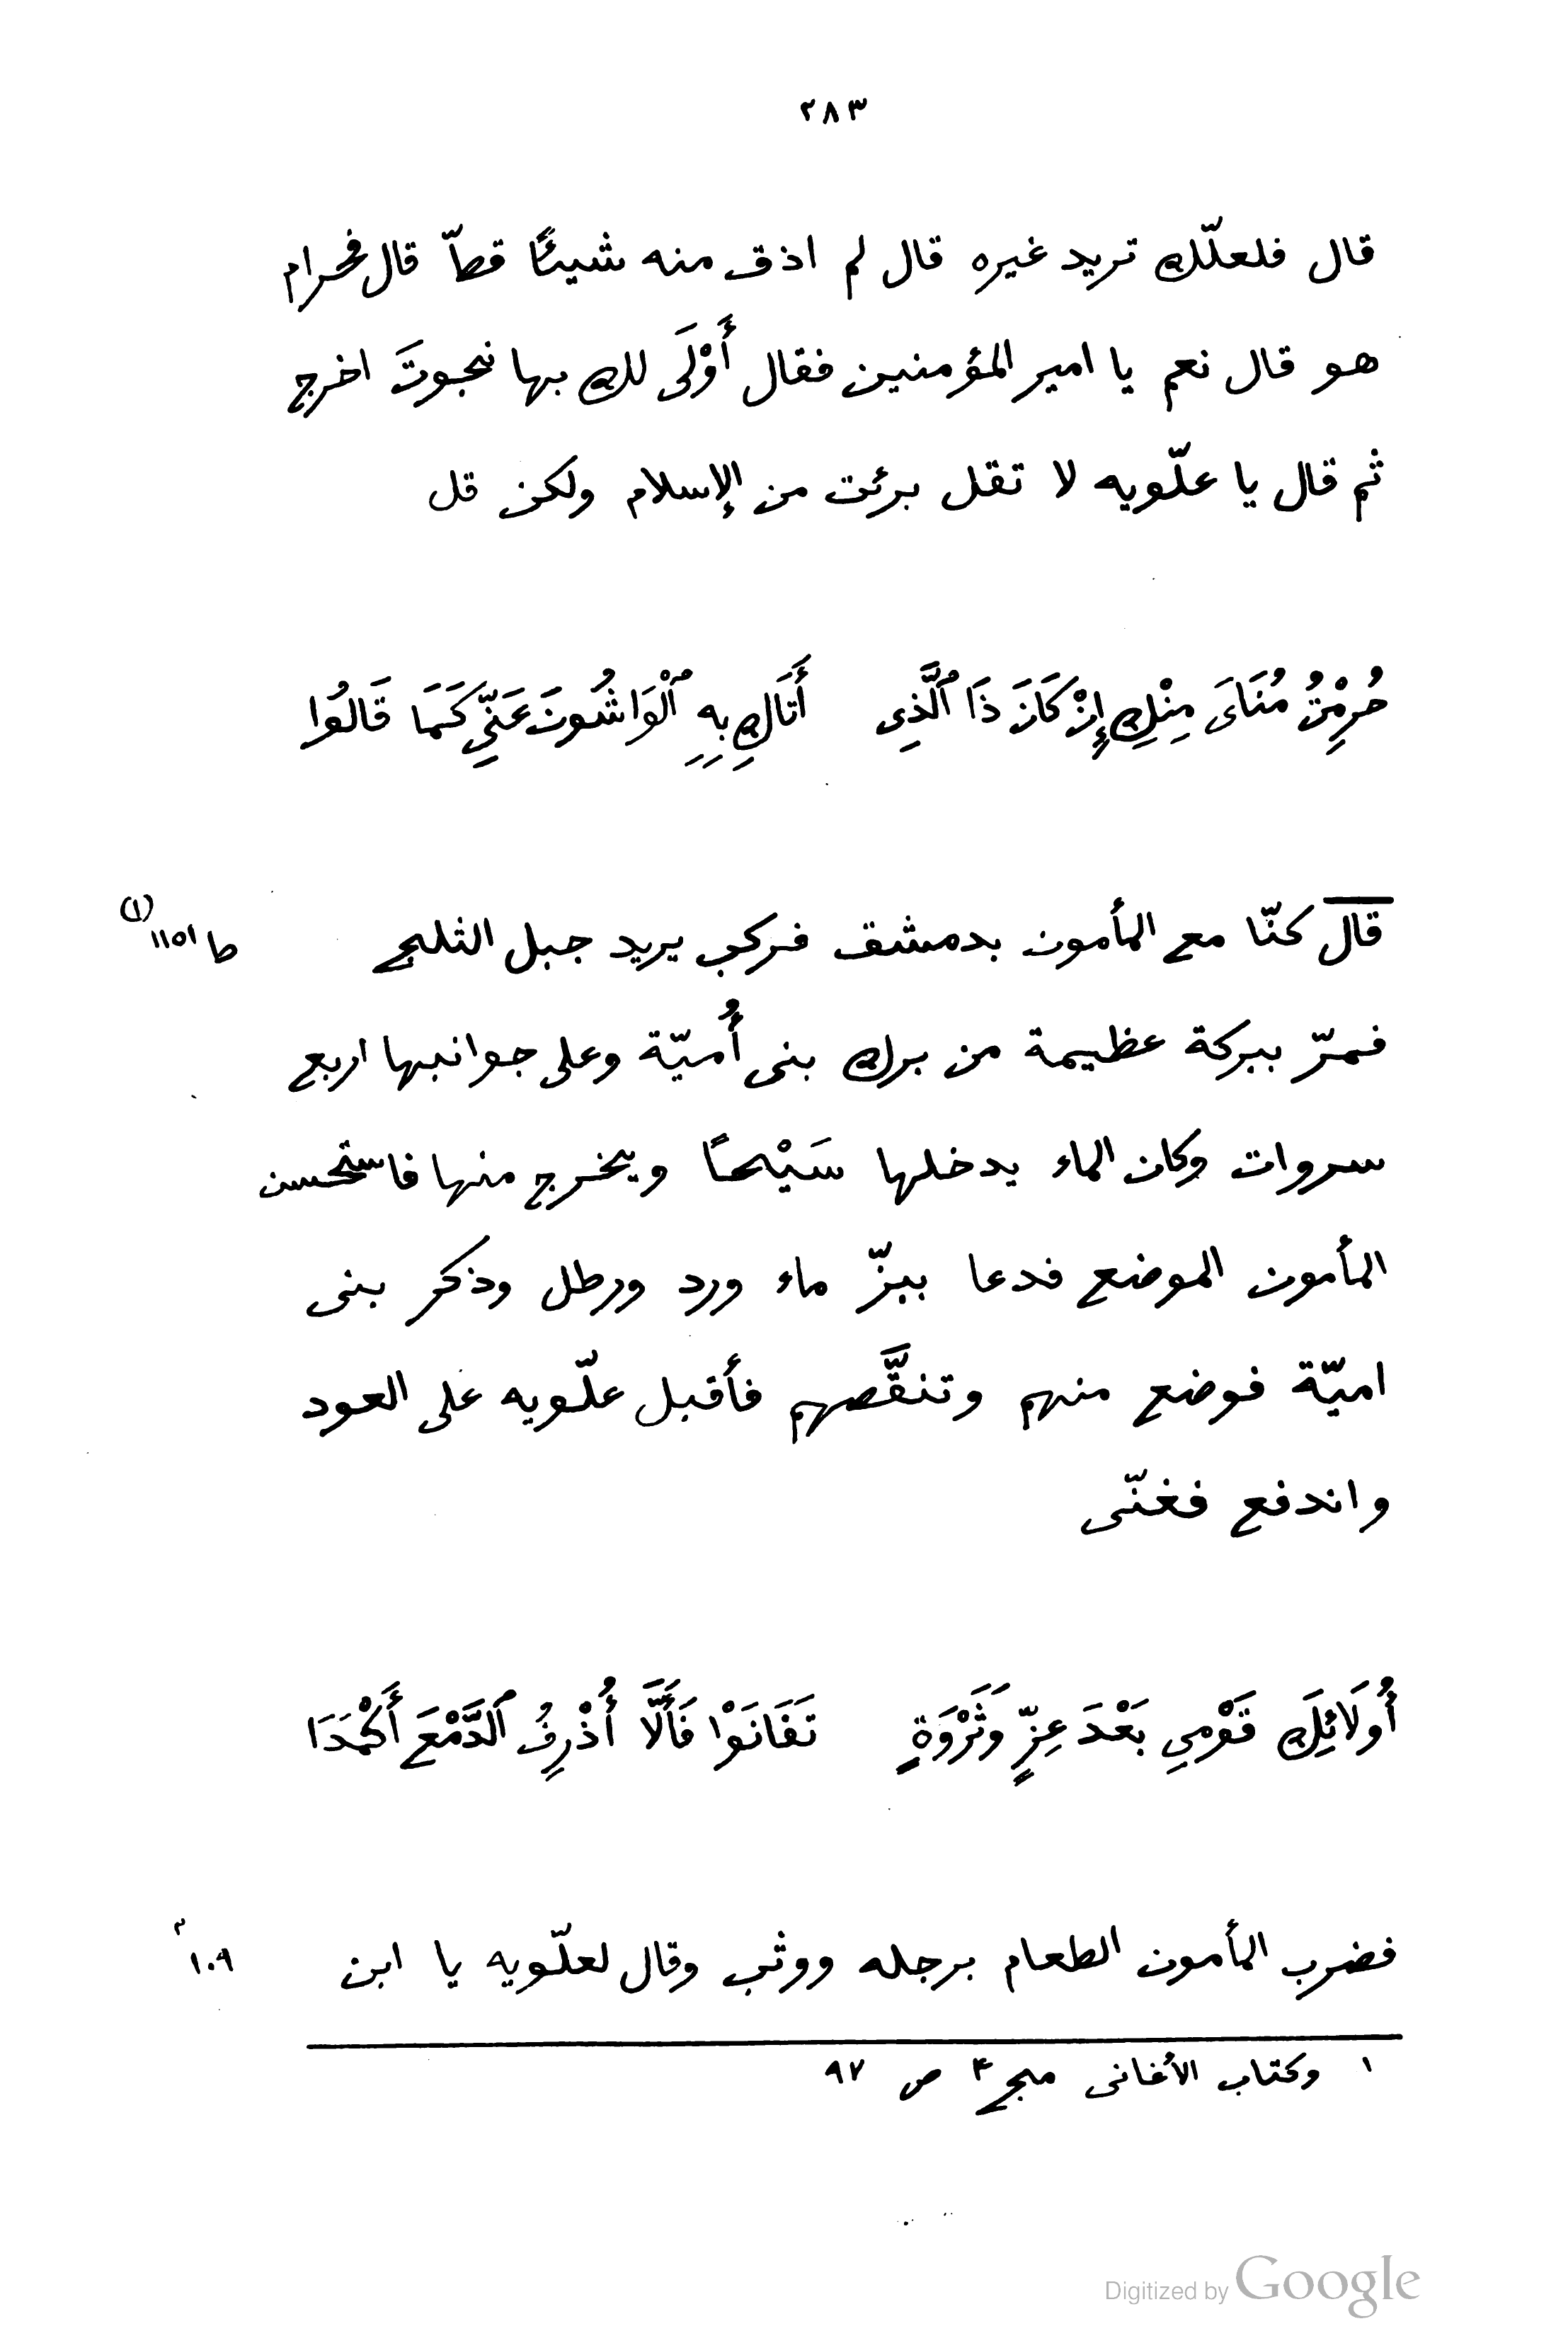 ٢٨٣
قال فلعلّك تريد غيره قال لم اذق منه شيئًا قطّ قال فحرام
هو قال نعم يا امير المؤمنين فقال أَوْلَى لك بها نجوتَ اخرج
ثم قال يا علّويه لا تقل برئت من الإسلام ولكن قل
حُرِمْتُ مُنَاىَ مِنْكِ إِنْ كَانَ ذَا ٱلَّذِى أَتَاكِ بِهِ ٱلْوَاشُونَ عَنِّي كَمَا قَالُوا
قال كنّا مع المأمون بدمشق فركب يريد جبل الثلج ط ١١٥١ (١)
فمرّ ببركة عظيمة من برك بنى أُميّة وعلى جوانبها اربع
سروات وكان الماء يدخلها سَيْحًا ويخرج منها فاستحسن
المأمون الموضع فدعا ببزّ ماء ورد ورطل وذكر بنى
اميّة فوضع منهم وتنقَّصهم فأقبل علّويه على العود
واندفع فغنّى
أُولَائِكَ قَوْمِي بَعْدَ عِزٍّ وَثَرْوَةٍ تَفَانَوْا فَأَلَّا أُذْرِفُ ٱلدَّمْعَ أَكْمَدَا
فضرب المأمون الطعام برجله ووثب وقال لعلّويه يا ابن ١٠٩ ٢
١ وكتاب الأغانى مجـ ٤ ص ٩٧
Digitized by Google